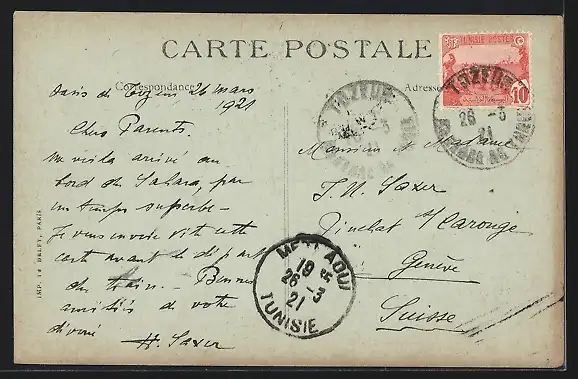 CARTE POSTALE
Correspondance
Adresse
TUNISIE POSTES
RF
10
TOZEUR
26 -3
21
TOZEUR
Oasis de Tozeur 26 mars
1921
Chers Parents.
Me voilà arrivé au
bord du Sahara, par
un temps superbe —
Je vous envoie vite cette
carte avant le départ
du train. Bonnes
amitiés de votre
dévoué
H. Saxer
Monsieur et Madame
Saxer
Pinchat s/ Carouge
Genève
Suisse
METLAOUI
19
26 -3
21
TUNISIE
IMP. 14 DELEY, PARIS